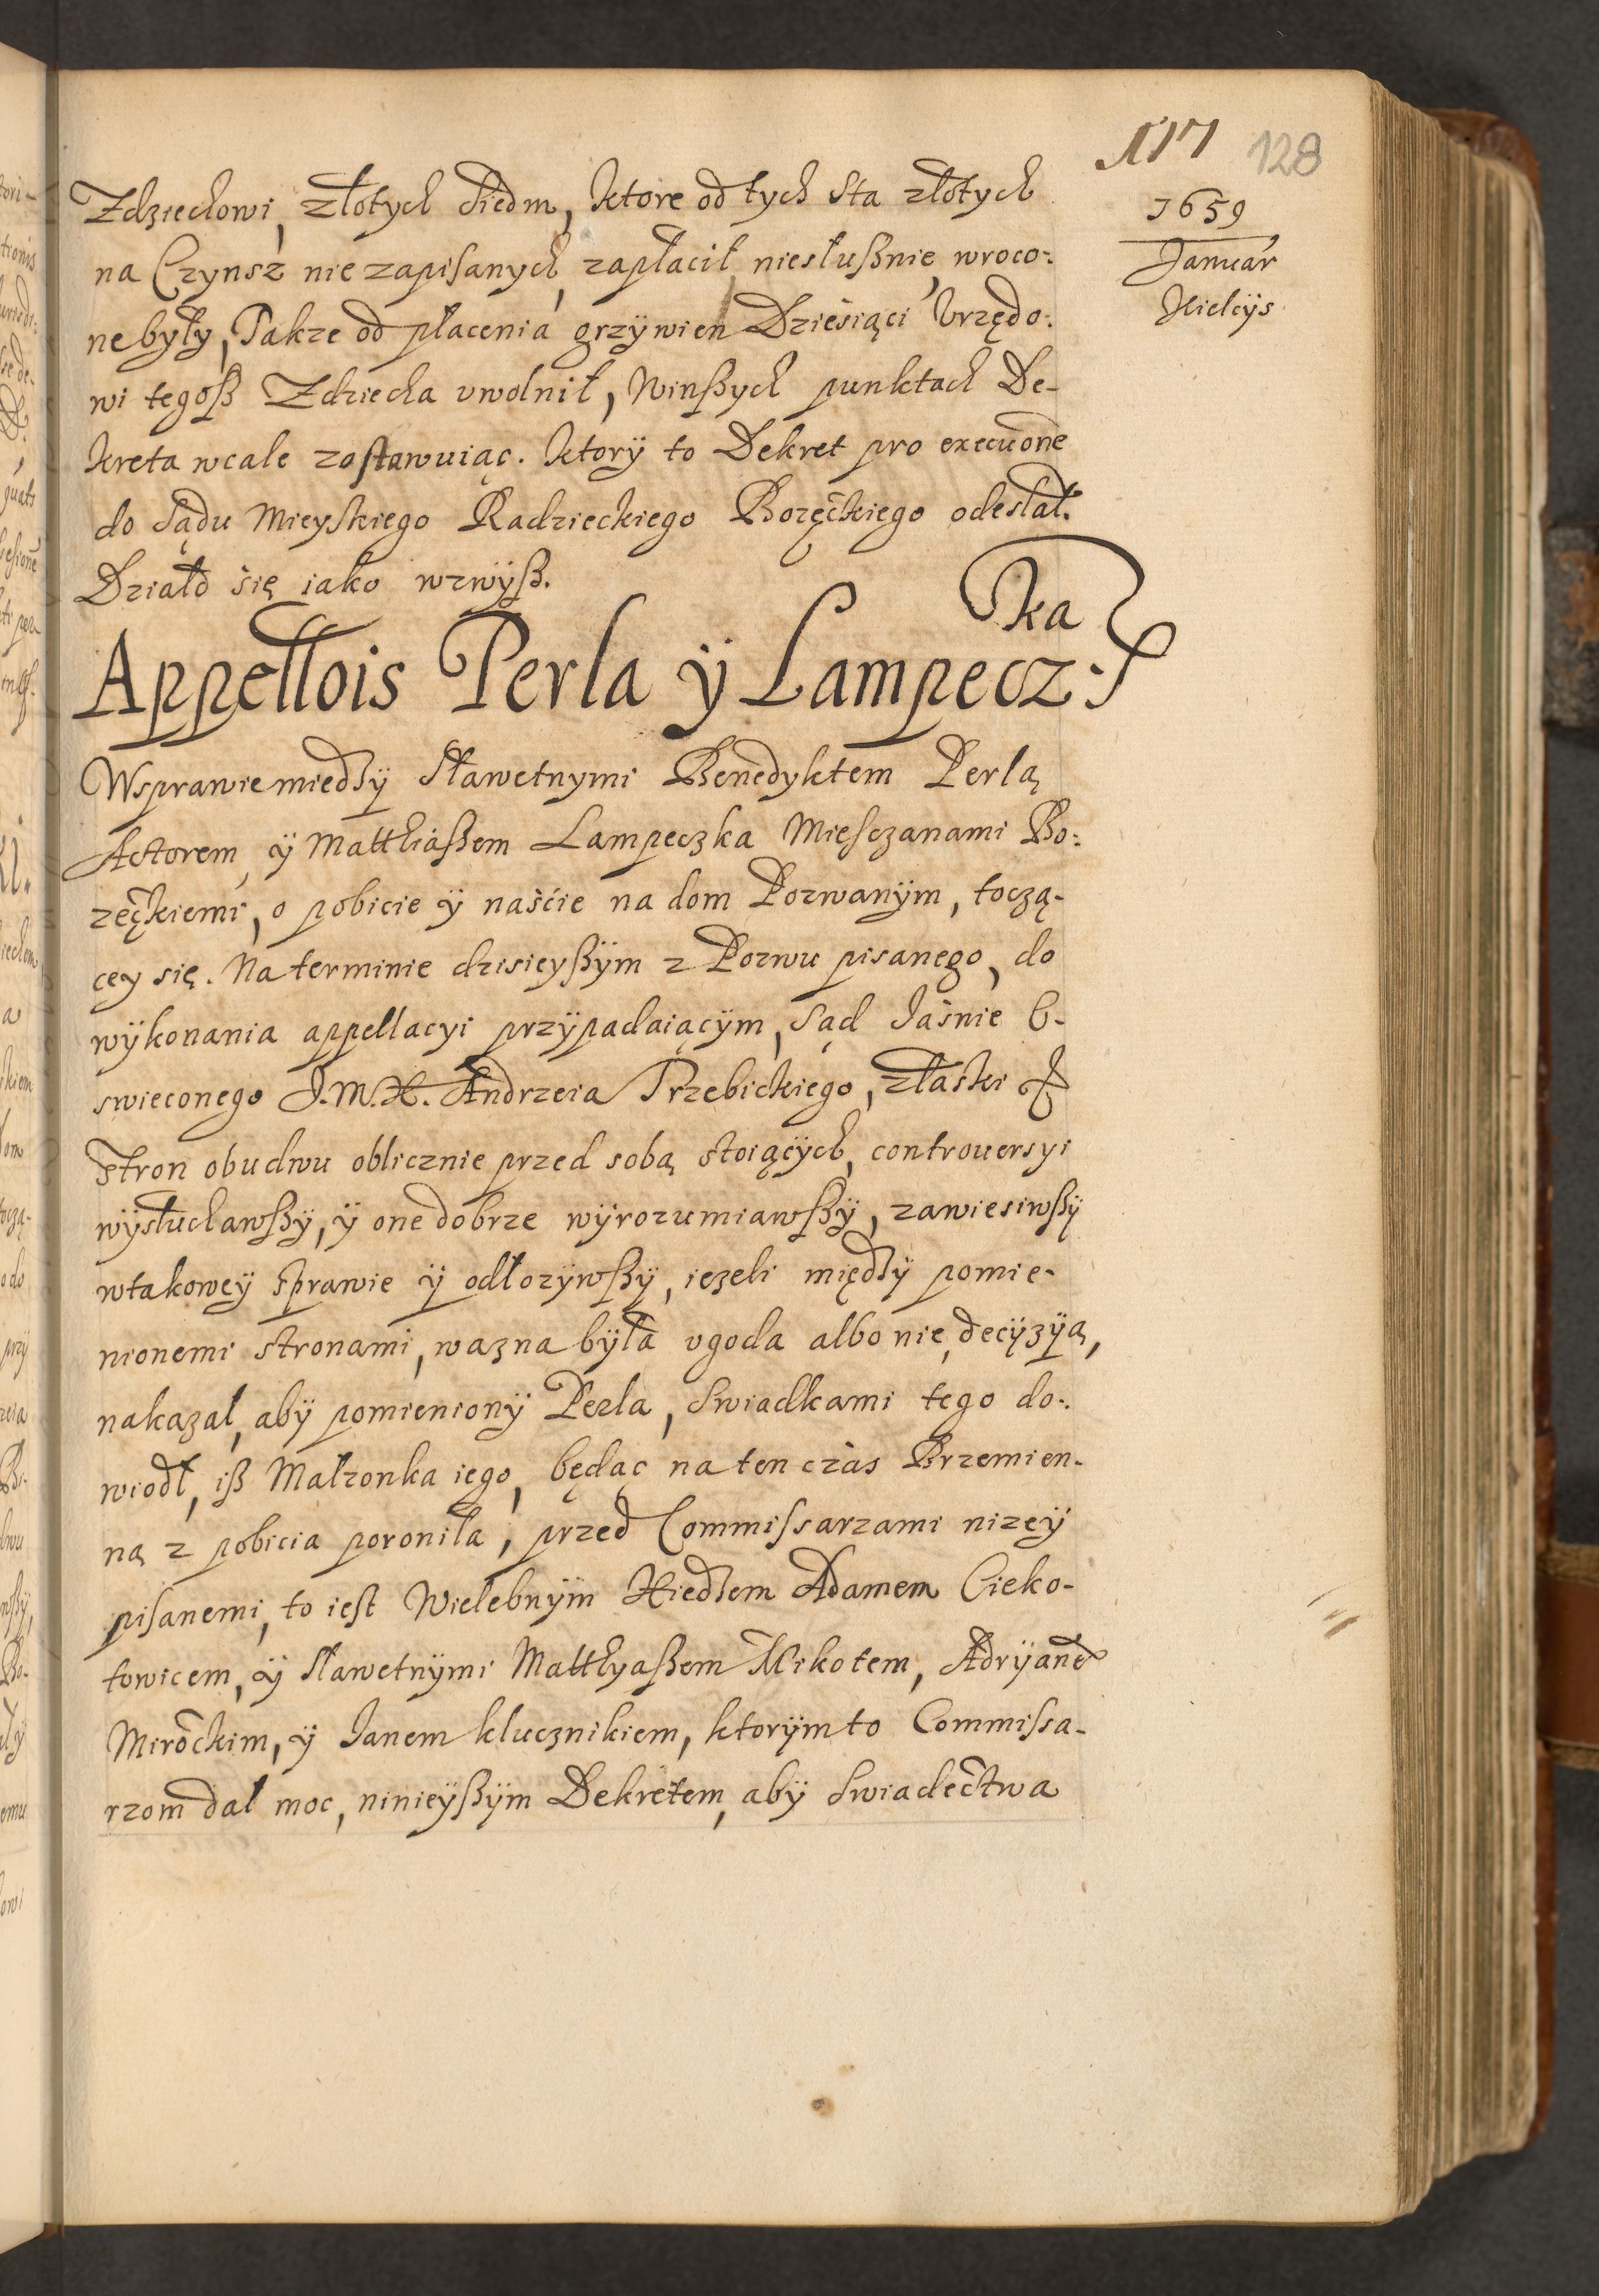 117 128
1659
Januar
Kielcÿs
Zdziechowi, złotych siedm, ktore od tych sta złotych
na Czynsz nie zapisanych, zapłacił niesłußnie, wroco:
ne były, Takze od płacenia grzÿwien Dziesiąci Vrzędo:
wi tegoß Zdziecha vwolnił, Winßych punktach De-
kreta wcale zostawuiąc. Ktorÿ to Dekret pro execuone
do Sądu Mieyskiego Radzieckiego Bozęckiego odesłał.
Działo się iako wzwÿß.
Appellois Perla ÿ Lampecz:
ka
Wsprawie miedzÿ Sławetnymi Benedyktem Perlą
Actorem, ÿ Matthiaßem Lampeczka Miesczanami Bo:
zęckiemi, o pobicie ÿ naśćie na dom Pozwanÿm, toczą-
cey się. Na terminie dzisieyßÿm z Pozwu pisanego, do
wÿkonania appellacyi przÿpadaiącÿm, Sąd Jaśnie O-
swieconego J.M.X. Andrzeia Trzebickiego, złaski
Stron obudwu oblicznie przed sobą stoiącÿch, controuersyi
wÿsłuchawßÿ, ÿ one dobrze wÿrozumiawßÿ, zawiesiwßÿ
wtakoweÿ sprawie ÿ odłozÿwßÿ, iezeli międzÿ pomie-
nionemi stronami, wazna była vgoda albo nie, decÿzÿą,
nakazał, abÿ pomienionÿ Perla, Swiadkami tego do:
wiodł, iß Małzonka iego, będąc na ten czas Brzemien-
ną z pobicia poroniła, przed Commissarzami nizeÿ
pisanemi, to iest Wielebnÿm Xiedzem Adamem Cieko-
towicem, ÿ Sławetnÿmi Matthyaßem Mikotem, Adrÿane
Mirockim, ÿ Janem klucznikiem, ktorÿm to Commissa-
rzom dał moc, ninieÿßÿm Dekretem, abÿ Swiadectwa